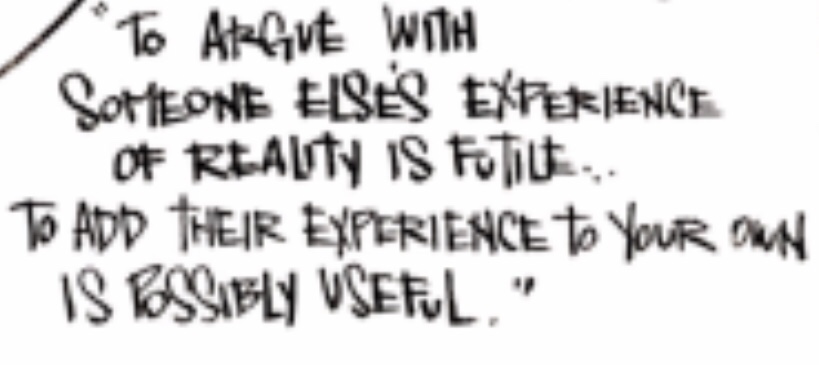 "To ARGUE WITH
SOMEONE ELSE'S EXPERIENCE
OF REALITY IS FUTILE...
To ADD THEIR EXPERIENCE to YOUR OWN
IS POSSIBLY USEFUL."